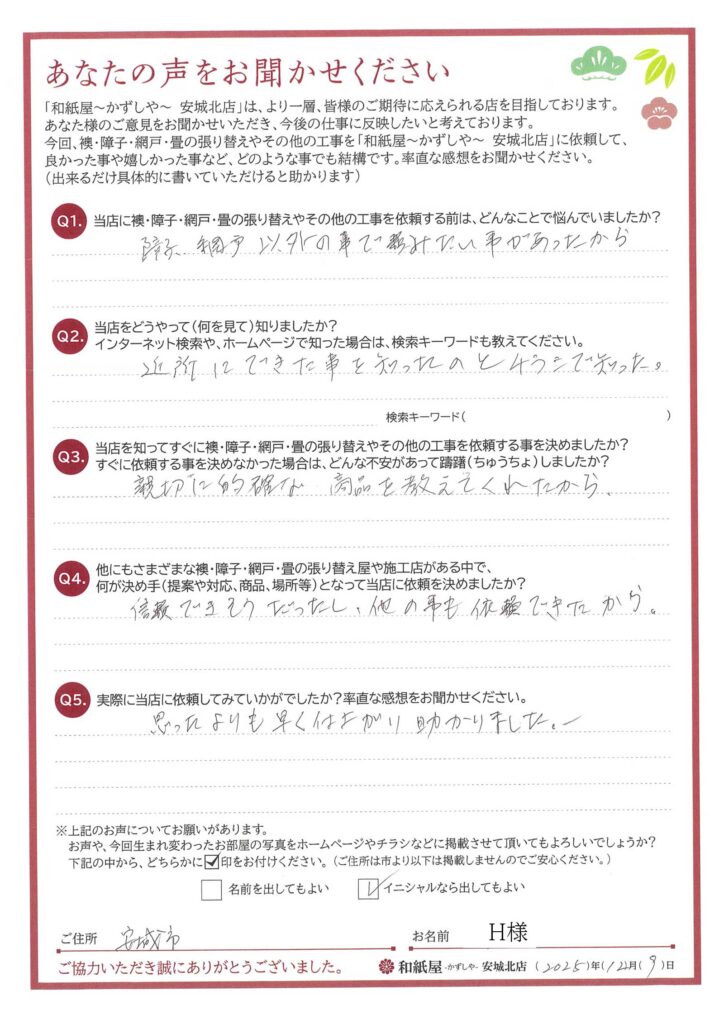 あなたの声をお聞かせください
「和紙屋～かずしや～ 安城北店」は、より一層、皆様のご期待に応えられる店を目指しております。
あなた様のご意見をお聞かせいただき、今後の仕事に反映したいと考えております。
今回、襖・障子・網戸・畳の張り替えやその他の工事を「和紙屋～かずしや～ 安城北店」に依頼して、
良かった事や嬉しかった事など、どのような事でも結構です。率直な感想をお聞かせください。
（出来るだけ具体的に書いていただけると助かります）
Q1. 当店に襖・障子・網戸・畳の張り替えやその他の工事を依頼する前は、どんなことで悩んでいましたか？
障子、網戸 以外の事で頼みたい事があったから
Q2. 当店をどうやって（何を見て）知りましたか？
インターネット検索や、ホームページで知った場合は、検索キーワードも教えてください。
近所にできた事を知ったのとチラシで知った。
検索キーワード（ ）
Q3. 当店を知ってすぐに襖・障子・網戸・畳の張り替えやその他の工事を依頼する事を決めましたか？
すぐに依頼する事を決めなかった場合は、どんな不安があって躊躇（ちゅうちょ）しましたか？
親切に的確な 商品を教えてくれたから。
Q4. 他にもさまざまな襖・障子・網戸・畳の張り替え屋や施工店がある中で、
何が決め手（提案や対応、商品、場所等）となって当店に依頼を決めましたか？
信頼できそうだったし、他の事も依頼できたから。
Q5. 実際に当店に依頼してみていかがでしたか？率直な感想をお聞かせください。
思ったよりも早く仕上がり助かりました。
※上記のお声についてお願いがあります。
お声や、今回生まれ変わったお部屋の写真をホームページやチラシなどに掲載させて頂いてもよろしいでしょうか？
下記の中から、どちらかに☑印をお付けください。（ご住所は市より以下は掲載しませんのでご安心ください。）
□ 名前を出してもよい ☑ イニシャルなら出してもよい
ご住所 安城市 お名前 H様
ご協力いただき誠にありがとうございました。 和紙屋 -かずしや- 安城北店 （2025）年（12）月（9）日